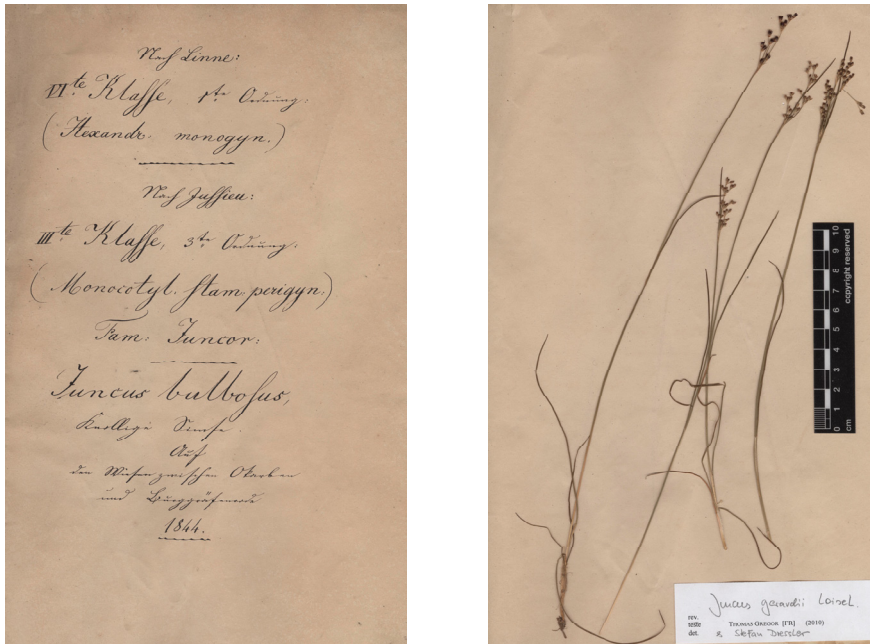 Nach Linne:
VI.te Klasse, 1te Ordnung.
(Hexandr. monogyn.)
Nach Jussieu:
III.te Klasse, 3te Ordnung.
(Monocotyl. stam. perigyn.)
Fam: Juncor:
Juncus bulbosus,
Knollige Simse.
Auf
den Wiesen zwischen Okarben
und Burggräfenrode
1844.
0 1 2 3 4 5 6 7 8 9 10
cm
copyright reserved
Juncus gerardii Loisel.
rev.
teste THOMAS GREGOR [FR] (2010)
det. & Stefan Dressler